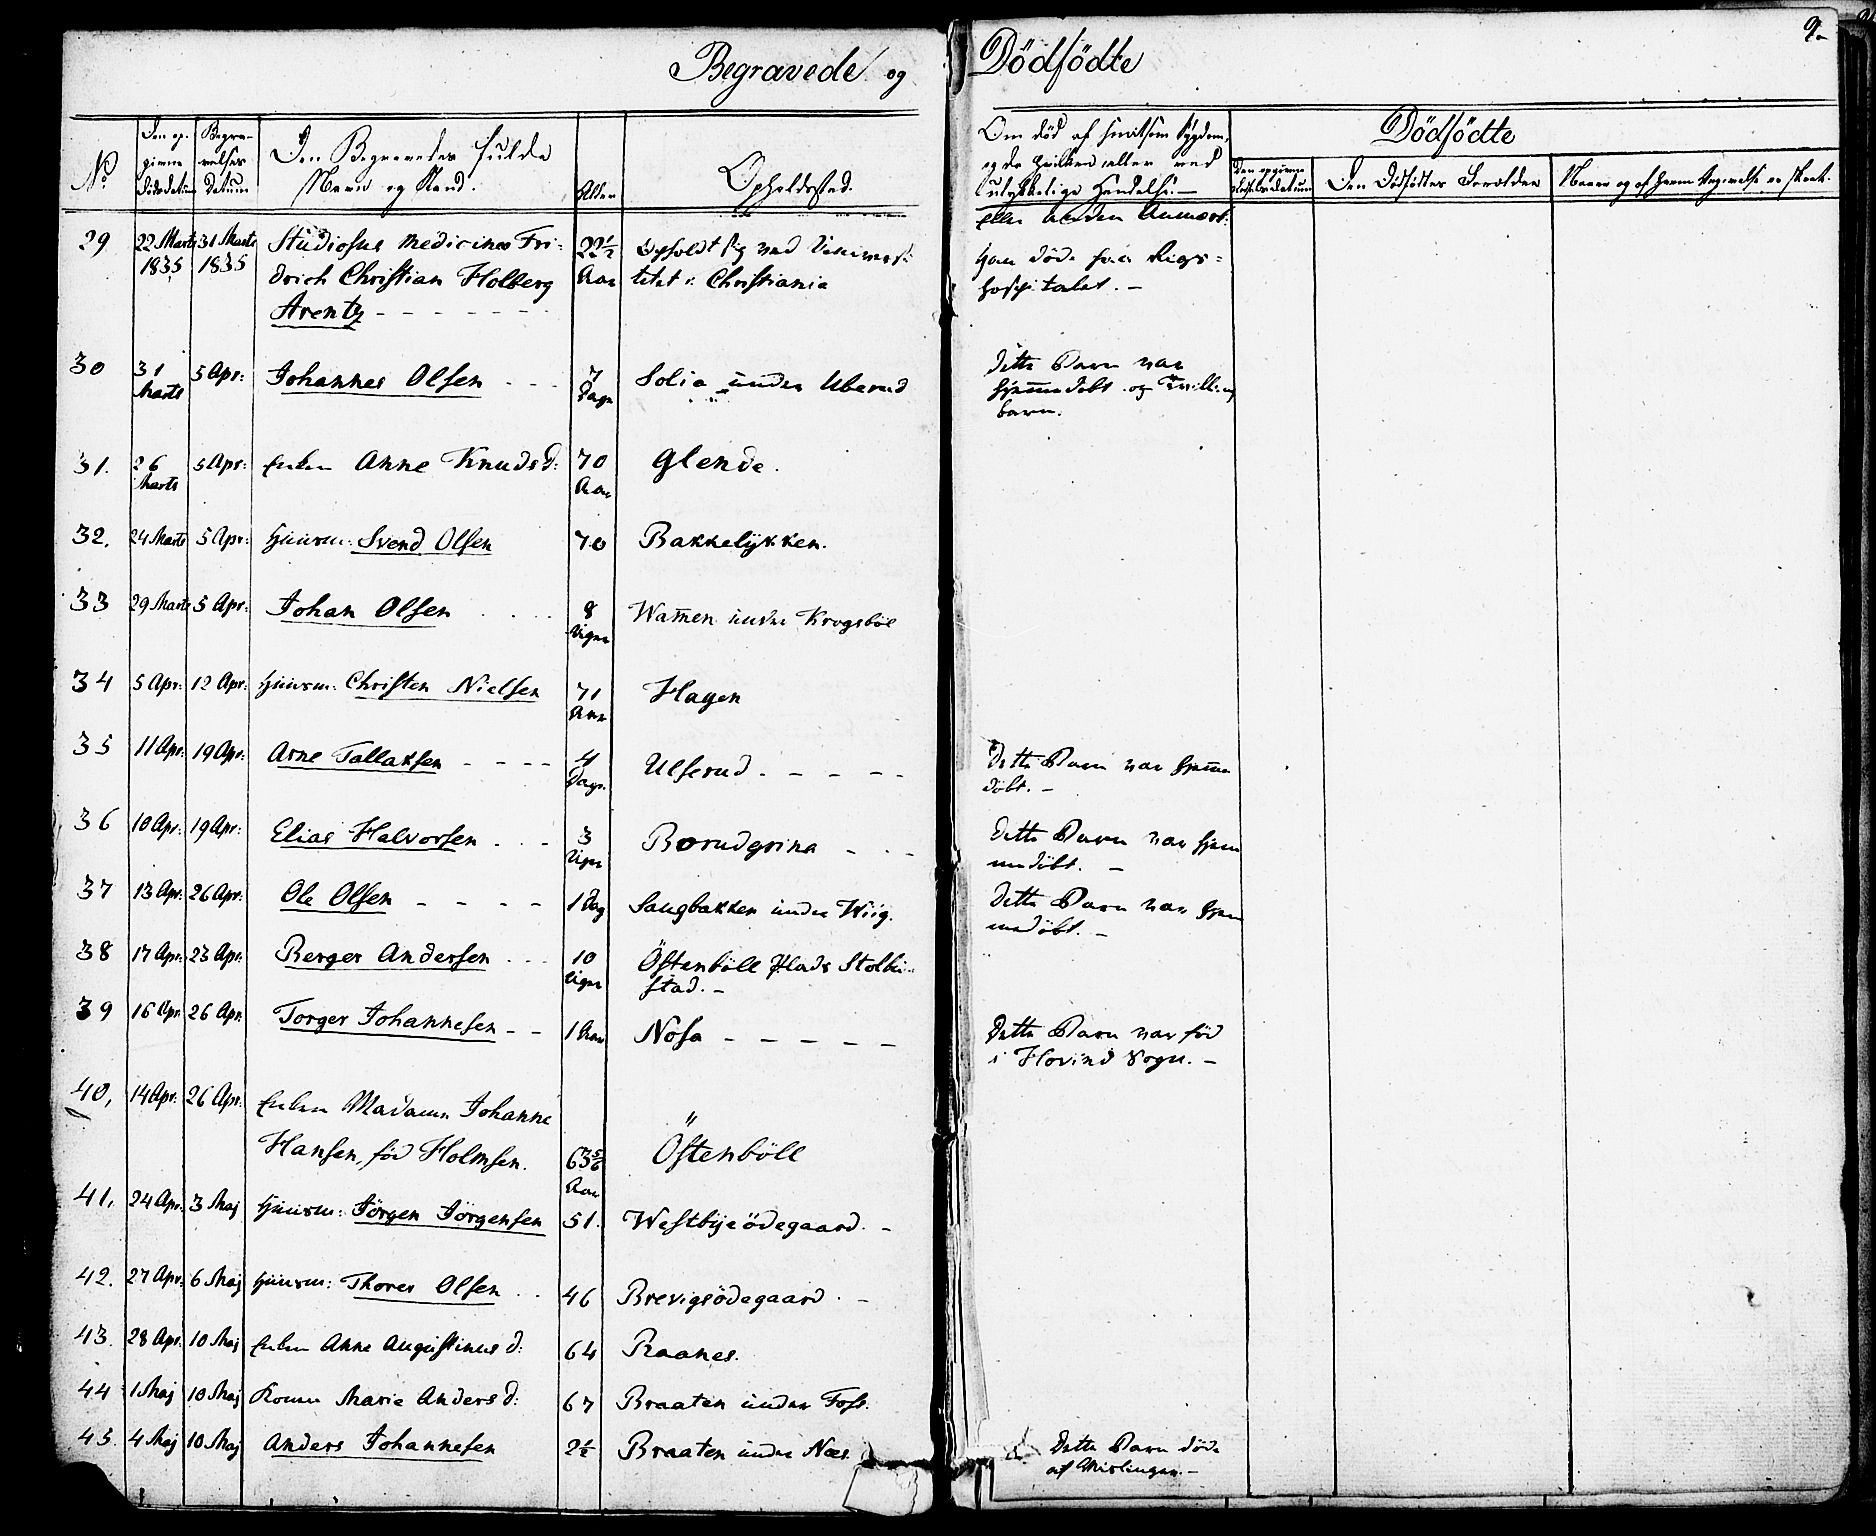 Begravede og Dödfödte
9.
No
Den op-
givne
Dödsdatum
Begra-
velses
Datum
Den Begravedes fulde
Navn og Stand.
Alder
Opholdssted.
Om död af smitsom Sygdom,
og da hvilken eller ved
ulykkelige Hændelse. —
eller anden Anmærk:
Dödfödte
Den opgivne
Den Dödfödtes Forældre
Naar og af hvem
29 22 Marts 1835 31 Marts 1835 Studiosus medicinæ Fri-
drich Christian Holberg
Arentz - - - - - - -
22½ Aar
Opholdt sig ved Universi-
tetet i Christiania
Han døde paa Rigs-
hospitalet. —
30 31 Marts 5 Apr: Johannes Olsen - - - 7 Dage Solia under Uberud
Dette Barn var
hjem̅edöbt og Tvilling
barn.
31. 26 Marts 5 Apr: Enken Anne Knudsd: 70 Aar Glende.
32. 24 Marts 5 Apr: Huusm: Svend Olsen 70 Bakkelykken.
33 29 Marts 5 Apr: Johan Olsen 8 Uger Wam̅en under Krogsböl
34 5 Apr: 12 Apr: Huusm: Christen Nielsen 71 Aar Hagen
35 11 Apr: 19 Apr: Arne Tallaksen - - - - 4 Dage Ulserud. - - - - -
Dette Barn var hjem̅e
döbt. —
36 10 Apr: 19 Apr: Elias Halvorsen - - - 3 Uger Borudgrina - - -
Dette Barn var hjem
medöbt. —
37 13 Apr: 26 Apr: Ole Olsen - - - - 1 Dag Saugbakken under Wiig.
Dette Barn var hjem
medöbt. —
38 17 Apr: 23 Apr: Berger Andersen - - - 10 Uger Östenböll Plads Stolbu-
stad. —
39 16 Apr: 26 Apr: Torger Johannesen - - 1 Aar Nosa - - - - -
Dette Barn var föd
i Hovind Sogn. —
40, 14 Apr: 26 Apr: Enken Madame Johanne
Hansen, föd Holmsen. 63 5/6 Aar Östenböll
41, 24 Apr: 3 Maj Huusm: Jörgen Jörgensen 51. Westbyeödegaard. —
42. 27 Apr: 6 Maj Huusm: Thores Olsen - - 46 Brevigsödegaard. —
43. 28 Apr: 10 Maj Enken Anne Augustinusd: 64 Raanes.
44 1 Maj 10 Maj Konen Marie Andersd: 67 Braaten under Foss.
45. 4 Maj 10 Maj Anders Johannesen 2½ Braaten under Næs
Dette Barn döde
af Mæslinger. —